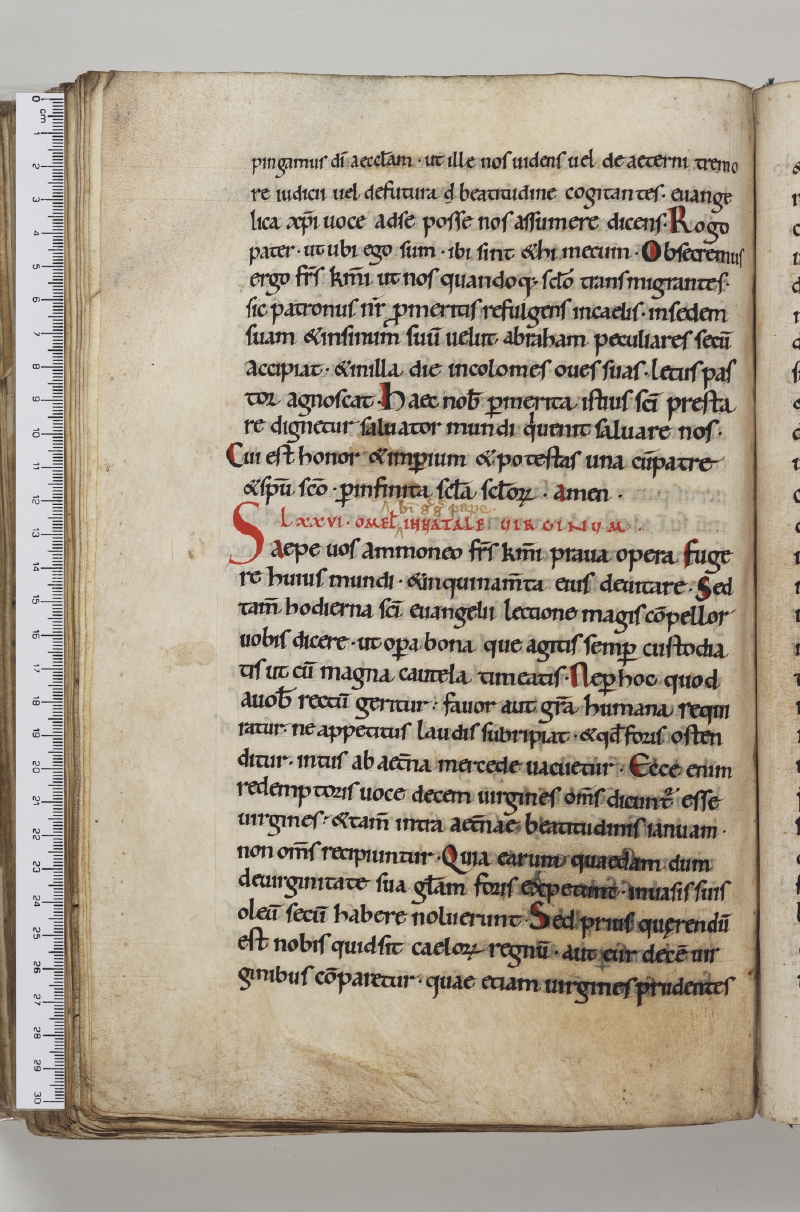 pingamus dī aeccl̄am · ut ille nos uidens uel de aeterni tremo
re iudicii uel defutura d̄ beatitudine cogitantes · euange
lica xp̄i uoce adse posse nos assumere dicens · Rogo
pater · ut ubi ego sum · ibi sint &hi mecum · Obsecremus
ergo fr̄s km̄i ut nos quandoq; sclo̅ transmigrantes ·
sic patronus nr̄ ꝑmeritis refulgens incaelis · insedem
suam &insinum̄ suū uelut abraham peculiares secū
accipiat · &inilla die incolomes oues suas · letus pas
tor agnoscat · Haec nob̄ ꝑmerita istius sc̄i presta
re dignetur saluator mundi qui uenit saluare nos ·
Cui est honor &imꝑium &potestas una cūpatre
&sp̄u sc̄o · ꝑinfinita scl̄a scl̄oꝝ · amen ·
bī gg̅ pape
LXXVI · OMEL̄ INNATALE VIRGINUM ·
Saepe uos ammoneo fr̄s km̄i praua opera fuge
re huius mundi · &inquinam̄ta eius deuitare · Sed
tam̄ hodierna sc̄i euangelii lectione magis cōpellor
uobis dicere · ut oꝑa bona que agitis semꝑ custodia
tis ut cū magna cautela timeatis · Neꝑ hoc quod
auob̄ rectū geritur · fauor aut gr̄a humana requi
ratur · ne appetitus laudis subripiat · &qd̄ foris osten
ditur · intus ab aet̄na mercede uacuetur · Ecce enim
redemptoris uoce decem uirgines om̄s dicunt̄ esse
uirgines · &tam̄ intra aet̄nae beatitudinis ianuam ·
non om̄s recipiuntur · Quia earum quaedam dum
deuirginitate sua gl̄am foris expetunt · inuasis suis
oleū secū habere noluerunt · Sed prius querendū
est nobis quid sit caeloꝝ regnū · aut cur decē uir
ginibus cōparetur · quae etiam uirgines prudentes
0
cm
1
2
3
4
5
6
7
8
9
10
11
12
13
14
15
16
17
18
19
20
21
22
23
24
25
26
27
28
29
30